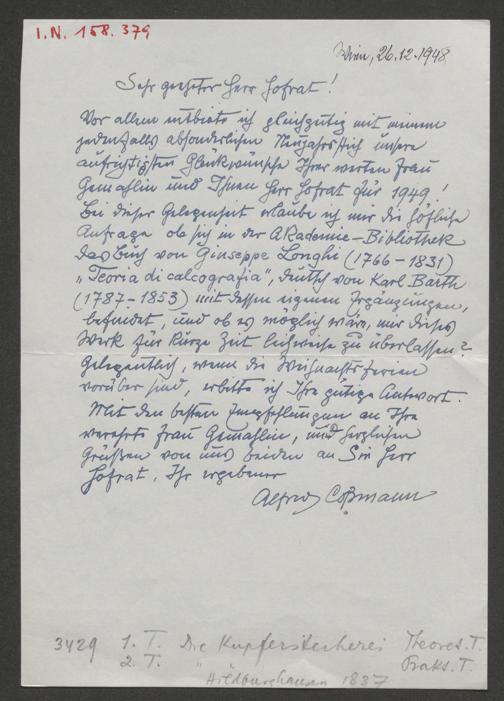 I.N. 158.379
Wien, 26.12.1948.
Sehr geehrter Herr Hofrat!
Vor allem entbiete ich gleichzeitig mit meinem
jedenfalls absonderlichen Neujahrsstich unsere
aufrichtigsten Glückwünsche Ihrer werten Frau
Gemahlin und Ihnen Herr Hofrat für 1949!
Bei dieser Gelegenheit erlaube ich mir die höfliche
Anfrage ob sich in der Akademie-Bibliothek
das Buch von Giuseppe Longhi (1766-1831)
„Teoria di calcografia", deutsch von Karl Barth
(1787-1853) mit dessen eigenen Ergänzungen,
befindet, und ob es möglich wäre, mir dieses
Werk für kurze Zeit leihweise zu überlassen?
Gelegentlich, wenn die Weihnachtsferien
vorüber sind, erbitte ich Ihre gütige Antwort.
Mit den besten Empfehlungen an Ihre
verehrte Frau Gemahlin, und herzlichen
Grüßen von uns beiden an Sie Herr
Hofrat, Ihr ergebener
Alfred Coßmann
3429 1. T. Die Kupferstecherei Theoret. T.
2. T. " " Prakt. T.
Hildburghausen 1837